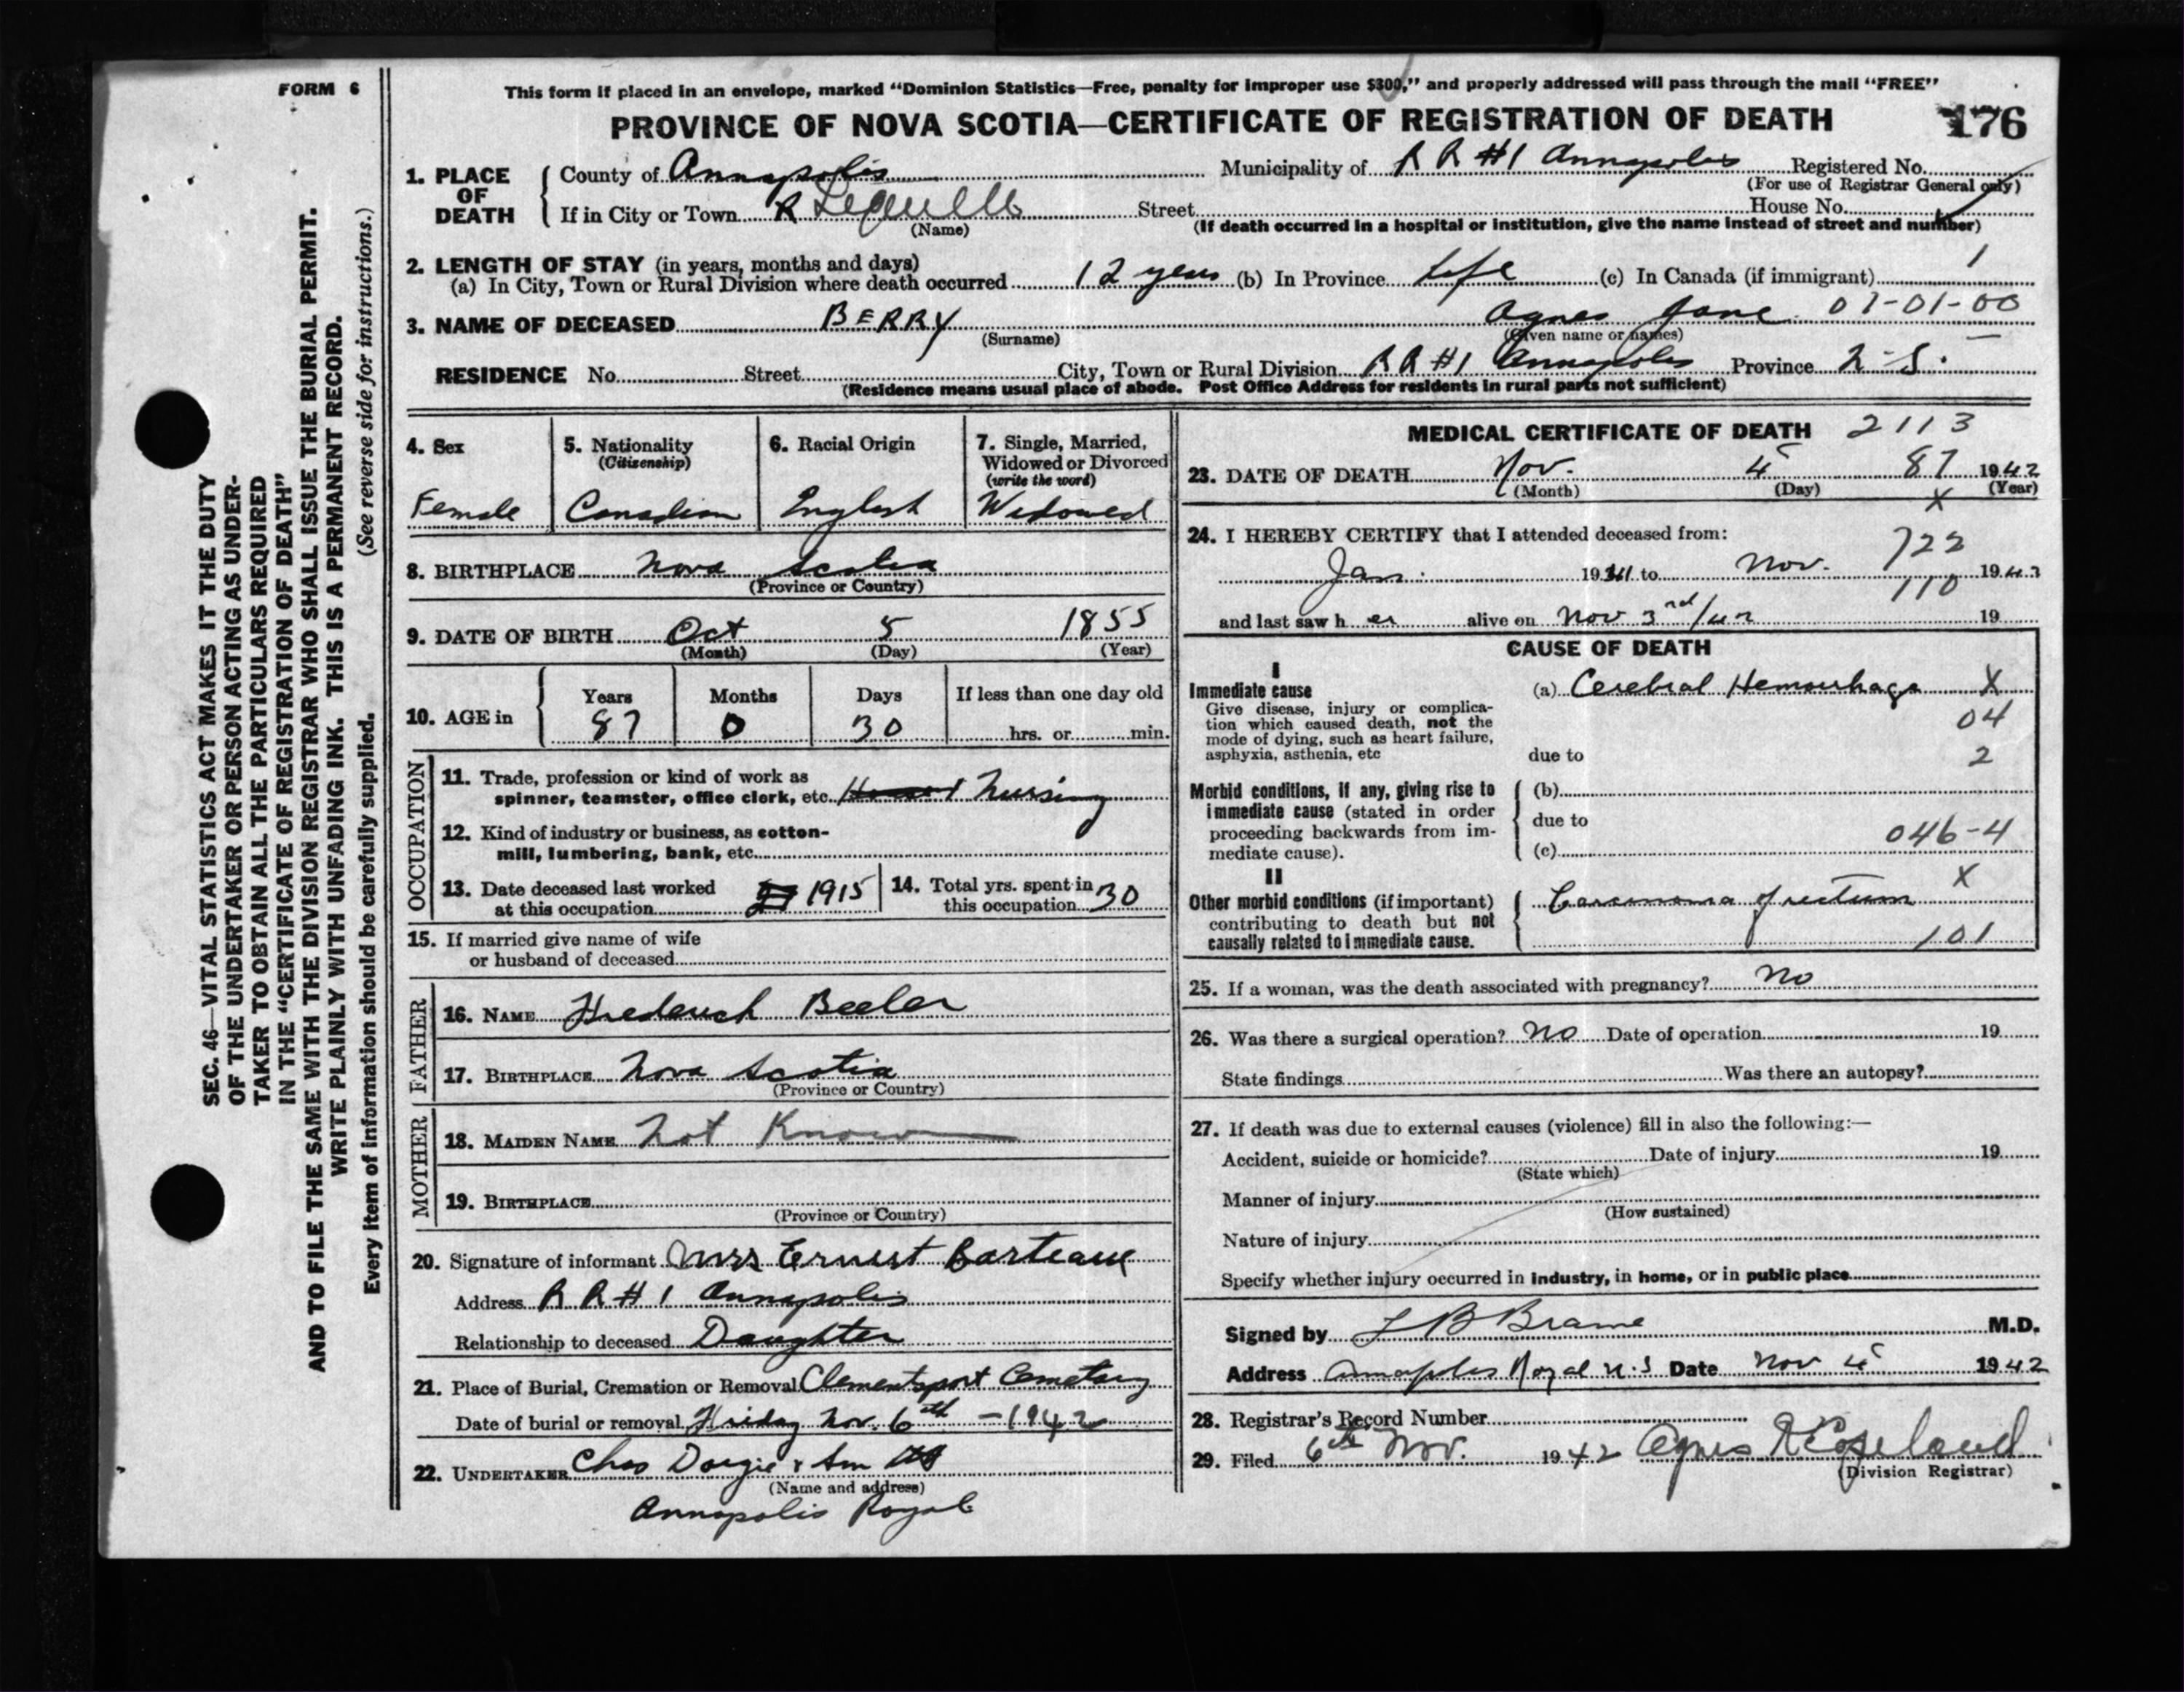 FORM 6
This form if placed in an envelope, marked “Dominion Statistics—Free, penalty for improper use $300,” and properly addressed will pass through the mail “FREE”
PROVINCE OF NOVA SCOTIA—CERTIFICATE OF REGISTRATION OF DEATH 176
1. PLACE OF DEATH
County of Annapolis Municipality of R R #1 Annapolis Registered No.
(For use of Registrar General only)
If in City or Town R Lequille Street House No.
(Name) (If death occurred in a hospital or institution, give the name instead of street and number)
2. LENGTH OF STAY (in years, months and days)
(a) In City, Town or Rural Division where death occurred 12 years (b) In Province Life (c) In Canada (if immigrant) 1
3. NAME OF DECEASED BERRY Agnes Jane 01-01-00
(Surname) (Given name or names)
RESIDENCE No. Street City, Town or Rural Division R R #1 Annapolis Province N-S.
(Residence means usual place of abode. Post Office Address for residents in rural parts not sufficient)
4. Sex
Female
5. Nationality
(Citizenship)
Canadian
6. Racial Origin
English
7. Single, Married,
Widowed or Divorced
(write the word)
Widowed
8. BIRTHPLACE Nova Scotia
(Province or Country)
9. DATE OF BIRTH Oct 5 1855
(Month) (Day) (Year)
10. AGE in
Years Months Days If less than one day old
87 0 30 hrs. or min.
OCCUPATION
11. Trade, profession or kind of work as
spinner, teamster, office clerk, etc. Nursing
12. Kind of industry or business, as cotton-
mill, lumbering, bank, etc.
13. Date deceased last worked
at this occupation 1915
14. Total yrs. spent in
this occupation 30
15. If married give name of wife
or husband of deceased
FATHER
16. NAME Frederick Beeler
17. BIRTHPLACE Nova Scotia
(Province or Country)
MOTHER
18. MAIDEN NAME Not Known
19. BIRTHPLACE
(Province or Country)
20. Signature of informant Mrs Ernest Barteaux
Address R R #1 Annapolis
Relationship to deceased Daughter
21. Place of Burial, Cremation or Removal Clementsport Cemetary
Date of burial or removal Friday Nov. 6th -1942
22. UNDERTAKER Chas Dargie & Son
(Name and address)
Annapolis Royal
MEDICAL CERTIFICATE OF DEATH 2113
23. DATE OF DEATH Nov. 4 87 1942
(Month) (Day) (Year)
X
24. I HEREBY CERTIFY that I attended deceased from:
722
Jan. 1941 to Nov. 1942
110
and last saw h er alive on Nov 3rd/42 19
CAUSE OF DEATH
I
Immediate cause
Give disease, injury or complica-
tion which caused death, not the
mode of dying, such as heart failure,
asphyxia, asthenia, etc
(a) Cerebral Hemorrhage X
04
due to 2
Morbid conditions, if any, giving rise to
immediate cause (stated in order
proceeding backwards from im-
mediate cause).
(b)
due to
(c) 046-4
II
Other morbid conditions (if important)
contributing to death but not
causally related to immediate cause.
X
Carcinoma of rectum
101
25. If a woman, was the death associated with pregnancy? No
26. Was there a surgical operation? No Date of operation 19
State findings Was there an autopsy?
27. If death was due to external causes (violence) fill in also the following:—
Accident, suicide or homicide? Date of injury 19
(State which)
Manner of injury
(How sustained)
Nature of injury
Specify whether injury occurred in industry, in home, or in public place
Signed by L B Brame M.D.
Address Annapolis Royal N.S Date Nov 4 1942
28. Registrar’s Record Number
29. Filed 6th Nov. 1942 Agnes R Copeland
(Division Registrar)
SEC. 46—VITAL STATISTICS ACT MAKES IT THE DUTY
OF THE UNDERTAKER OR PERSON ACTING AS UNDER-
TAKER TO OBTAIN ALL THE PARTICULARS REQUIRED
IN THE “CERTIFICATE OF REGISTRATION OF DEATH”
AND TO FILE THE SAME WITH THE DIVISION REGISTRAR WHO SHALL ISSUE THE BURIAL PERMIT.
WRITE PLAINLY WITH UNFADING INK. THIS IS A PERMANENT RECORD.
Every item of information should be carefully supplied. (See reverse side for instructions.)